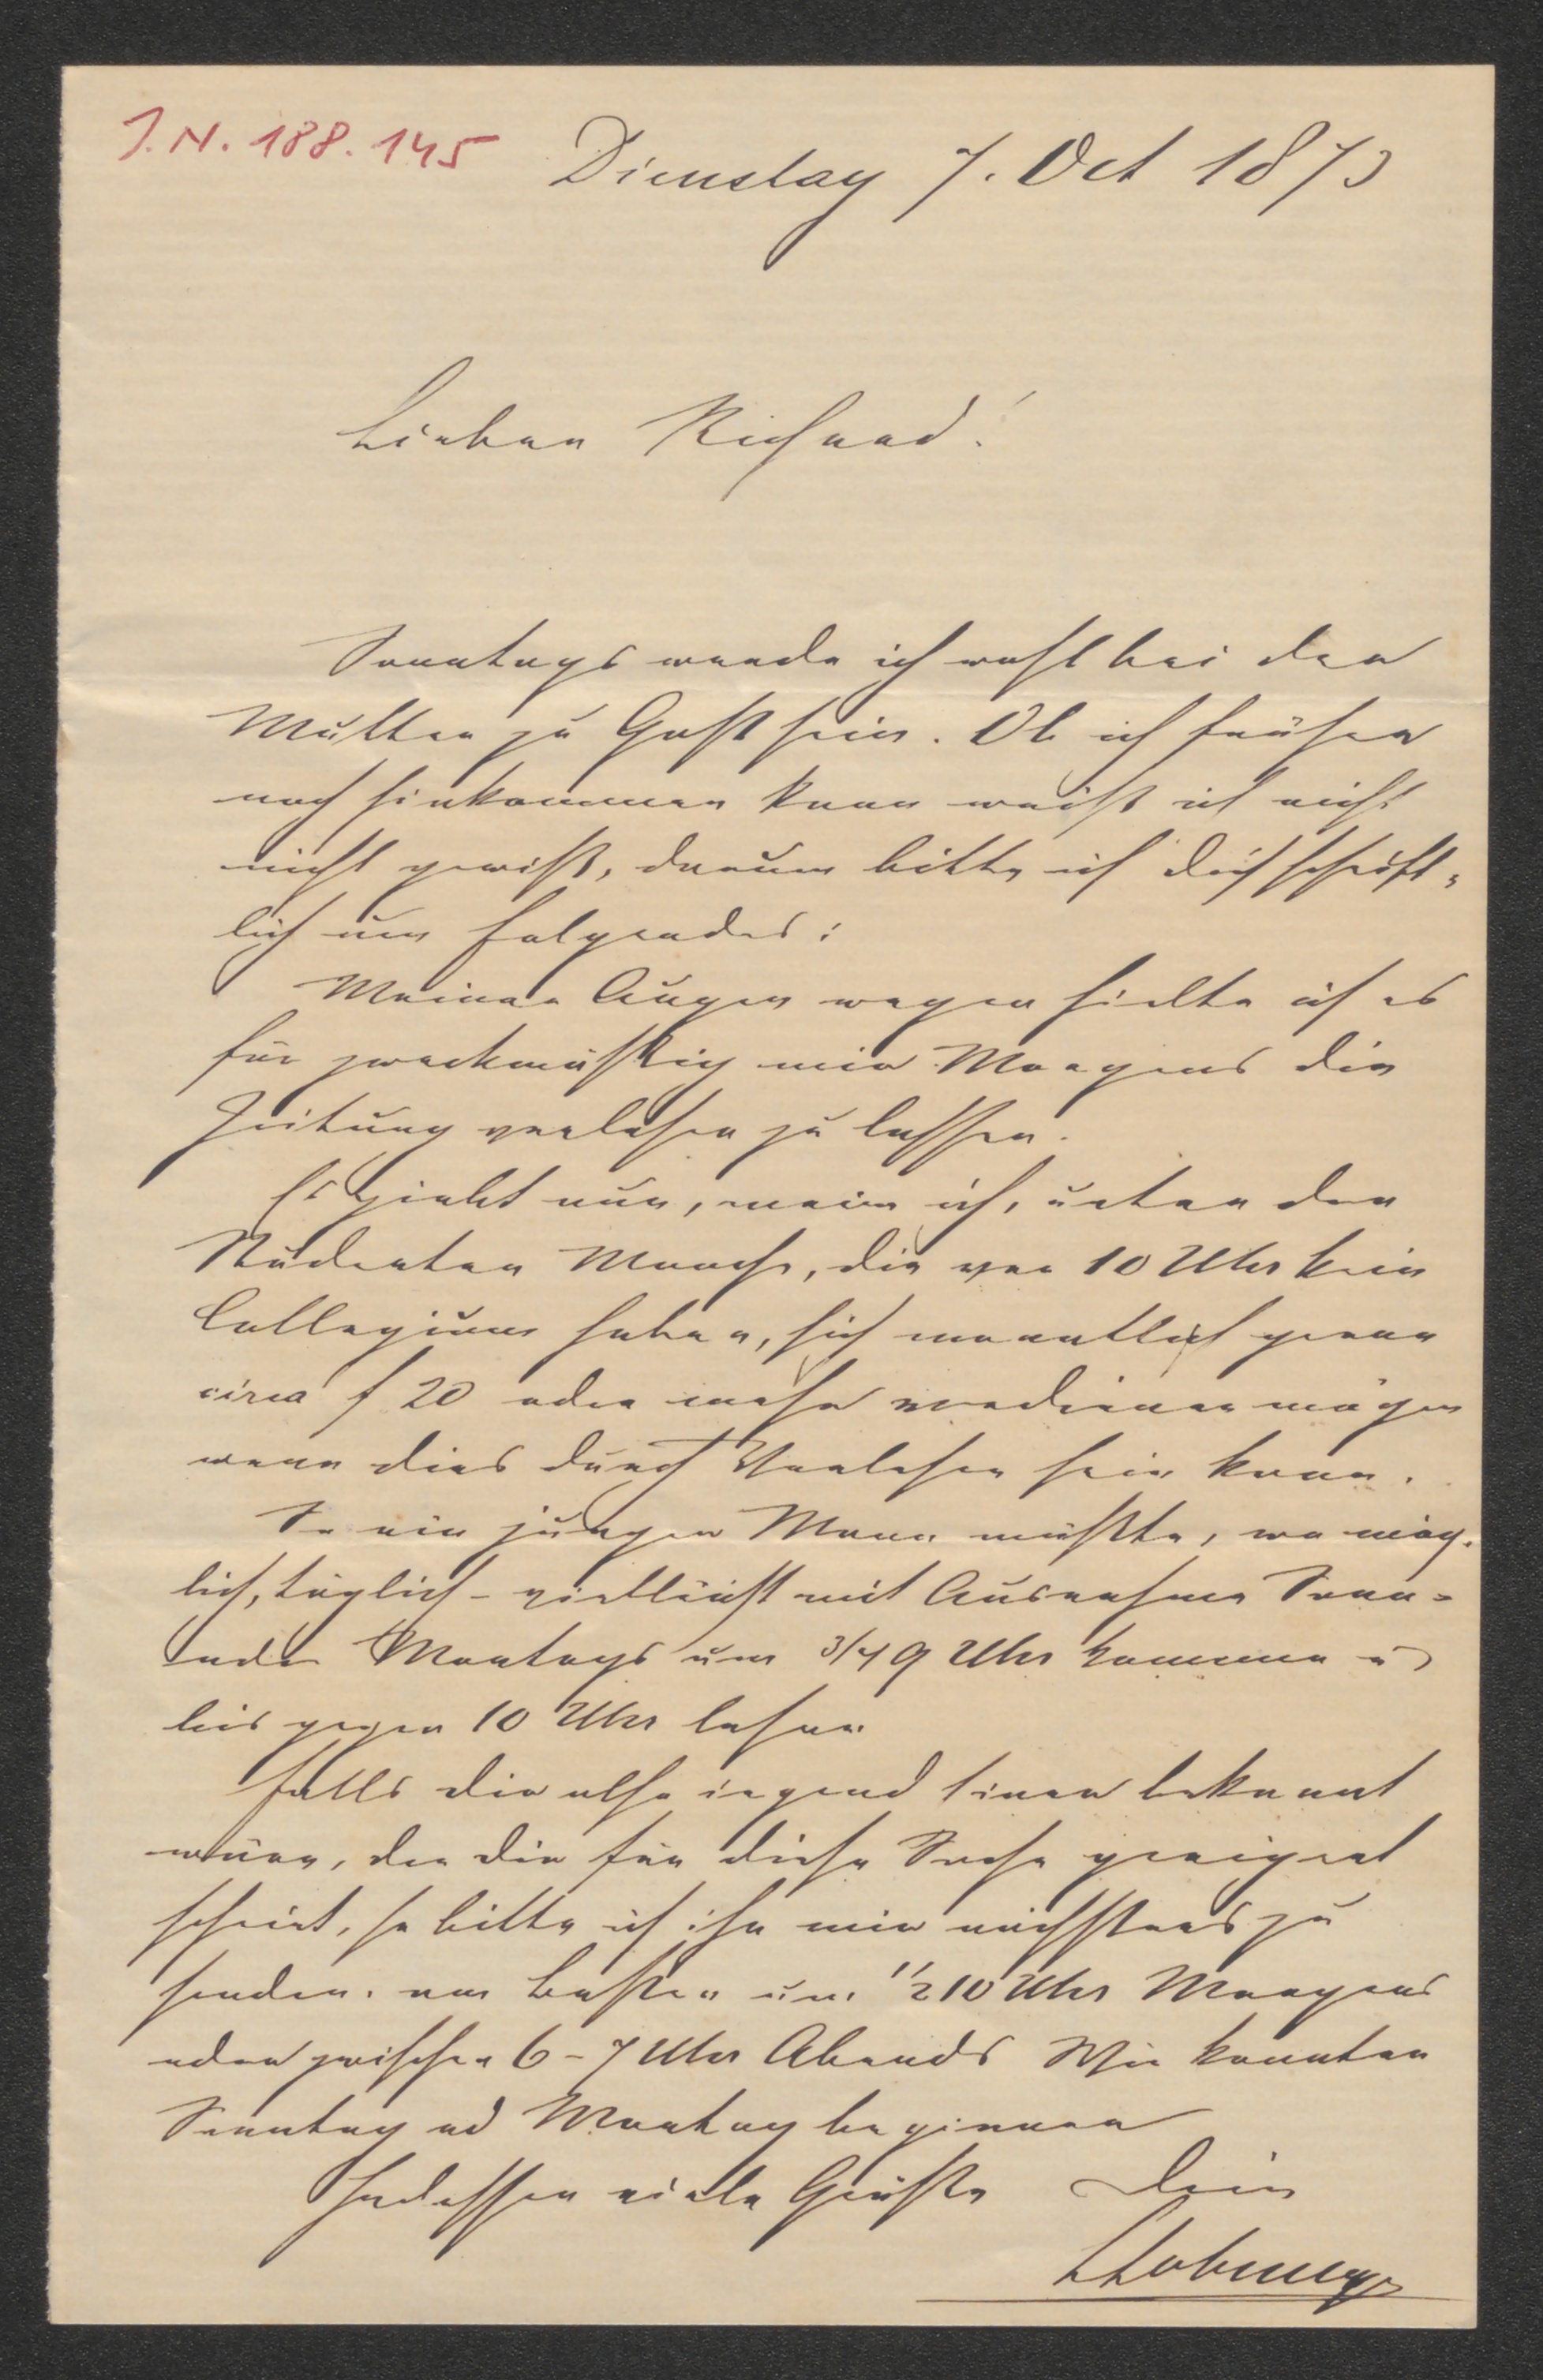 J.N. 188.145
Dienstag 7. Oct 1873
Lieber Richard!
Sonntags werde ich wohl bei der
Mutter zu Gast sein. Ob ich früher
noch hinkommen kann weiß ich nicht
nicht gewiß, darum bitte ich dich schrift-
lich um folgendes:
Meiner Augen wegen hielte ich es
für zweckmäßig mir Morgens die
Zeitung vorlesen zu lassen.
Es giebt nun, mein ich, unter den
Studenten Manche, die vor 10 Uhr kein
Collegium haben, sich monatlich gerne
circa f 20 oder mehr verdienen mögen
wenn dies durch Vorlesen sein kann.
So ein junger Mann müßte, wo mög-
lich, täglich - vielleicht mit Ausnahme Sonn-
oder Montags um 3/4 9 Uhr kommen u
bis gegen 10 Uhr lesen
Falls dir also irgend Einer bekannt
wäre, der dir für diese Sache geeignet
scheint, so bitte ich ihn mir nächstens zu
senden. am besten um 1/2 10 Uhr Morgens
oder zwischen 6-7 Uhr Abends Wir könnten
Sonntag od Montag beginnen
Indessen viele Grüße Dein
LLobmeyr